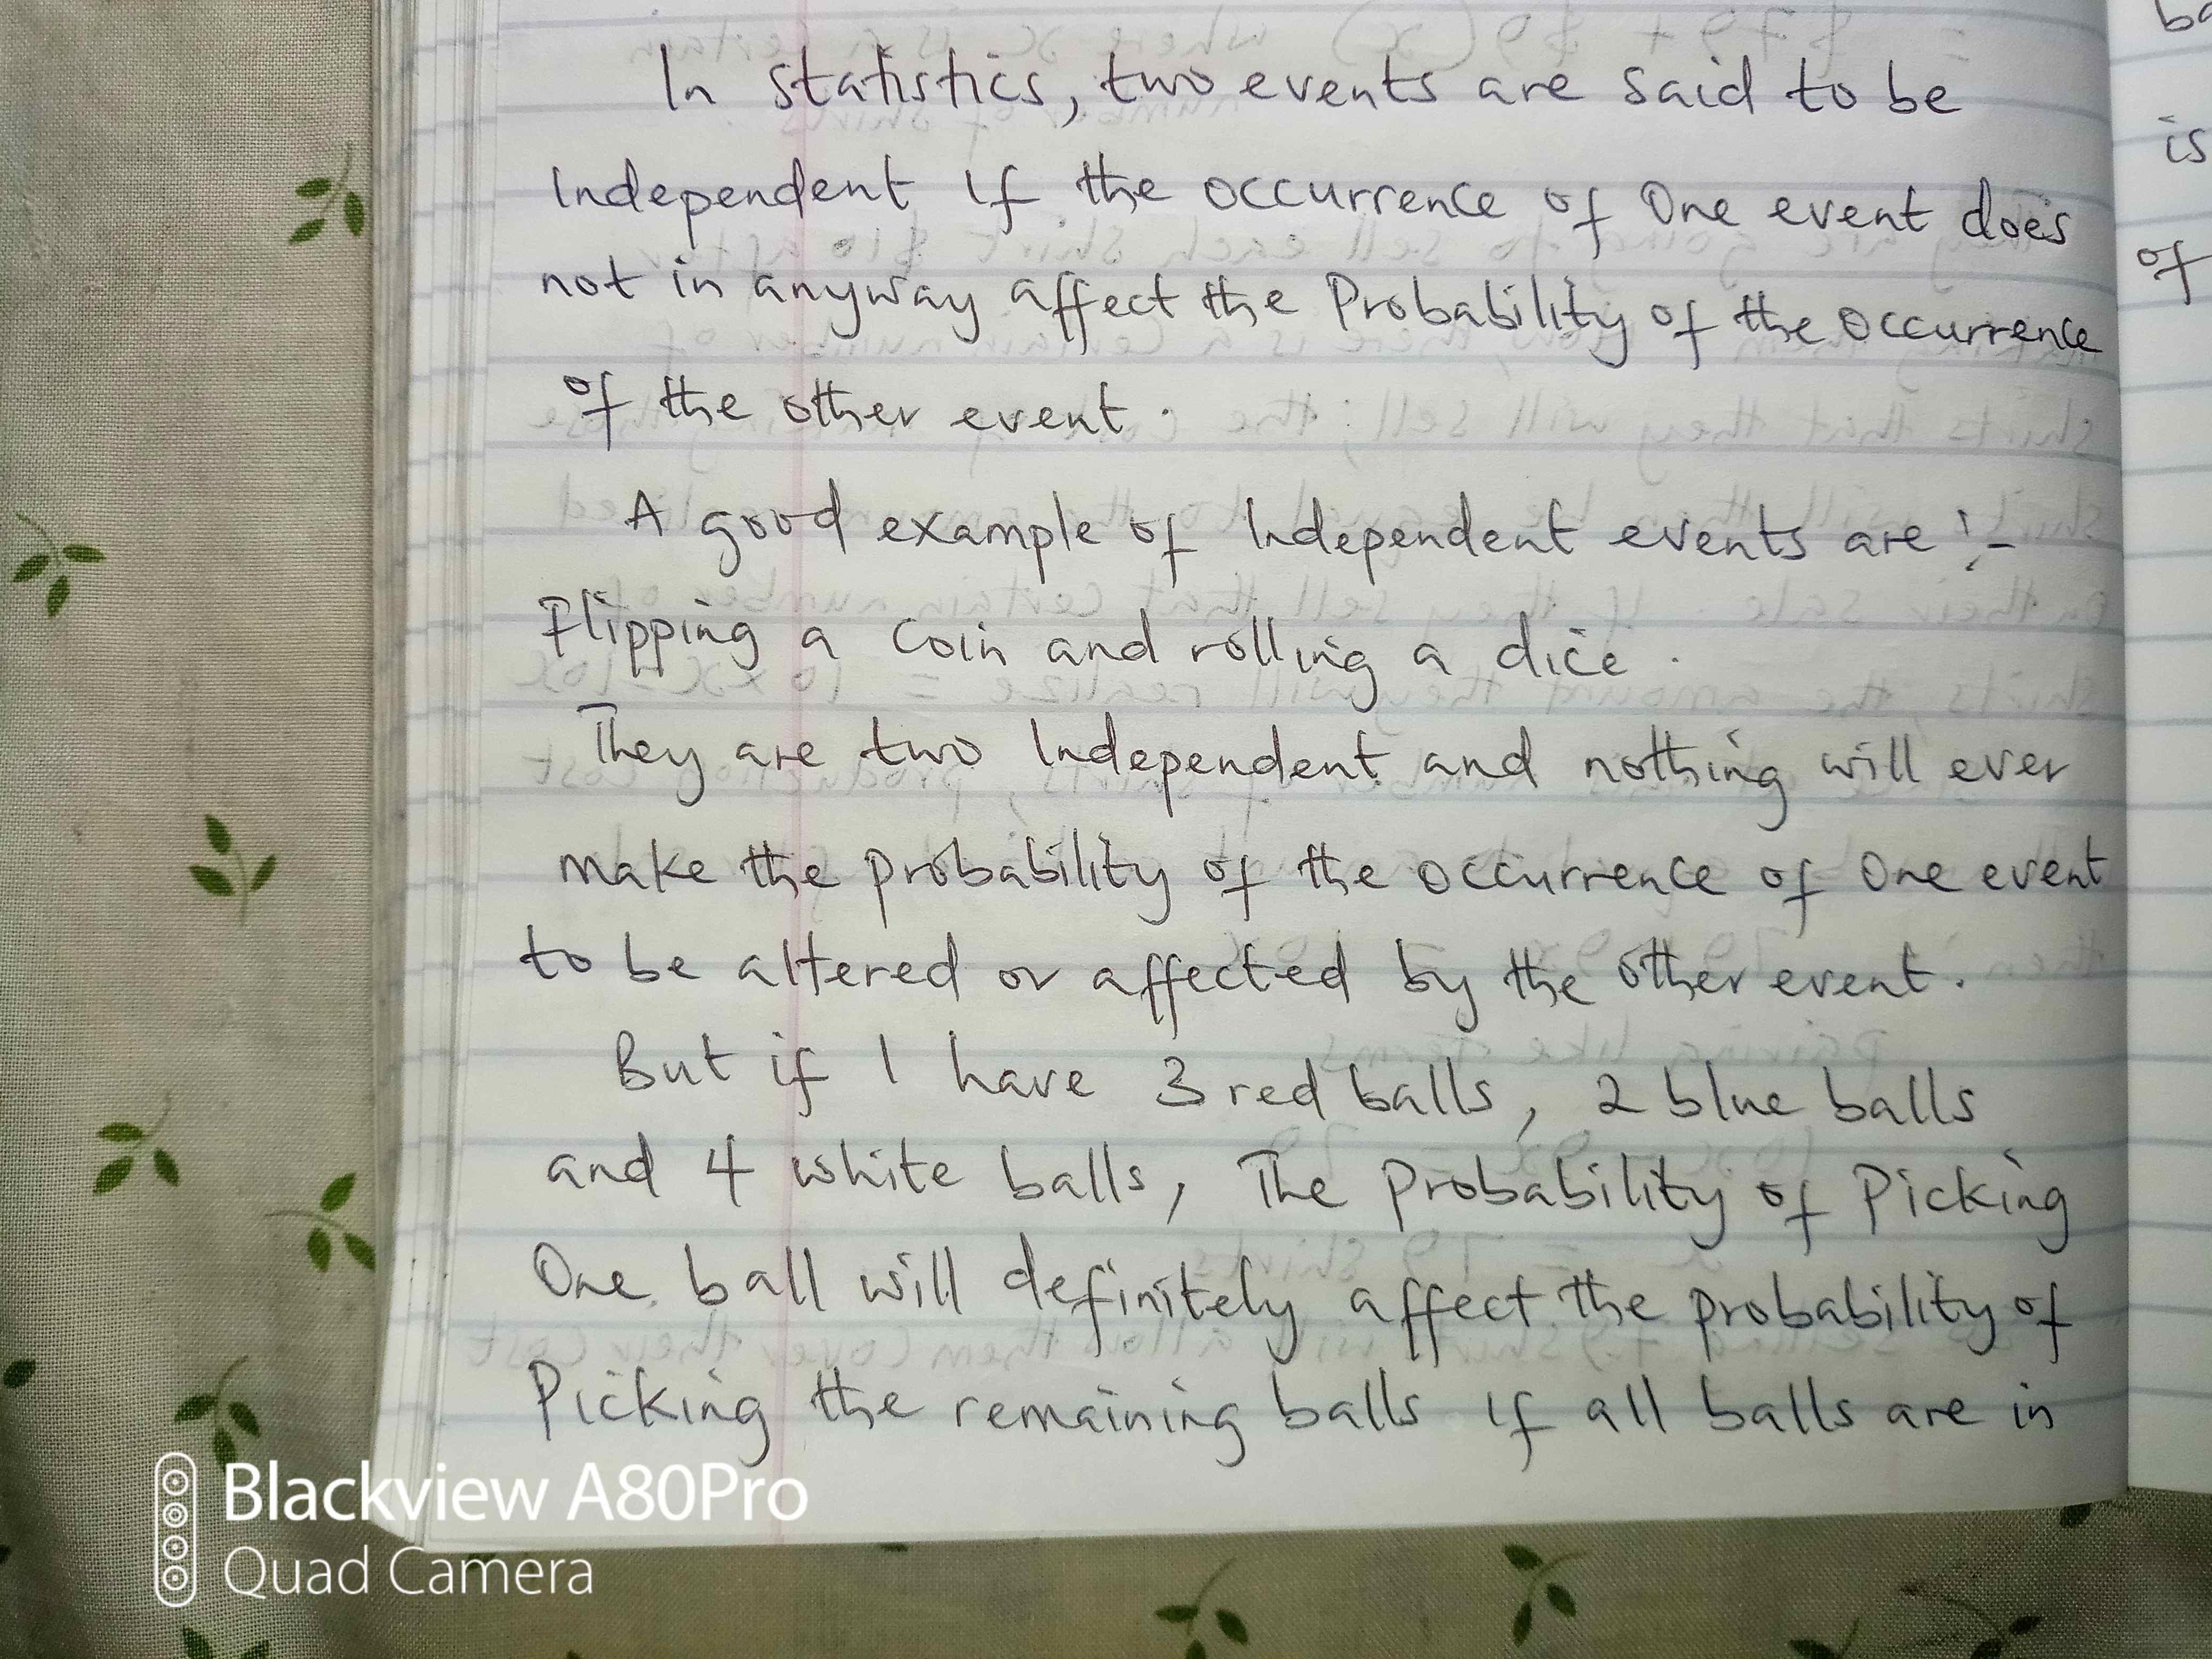 In statistics, two events are said to be
Independent if the occurrence of One event does
not in anyway affect the Probability of the occurrence
of the other event.
A good example of Independent events are :-
Flipping a coin and rolling a dice.
They are two Independent and nothing will ever
make the probability of the occurrence of One event
to be altered or affected by the other event.
But if I have 3 red balls, 2 blue balls
and 4 white balls, The probability of Picking
One ball will definitely affect the probability of
Picking the remaining balls if all balls are in
is
of
Blackview A80Pro
Quad Camera